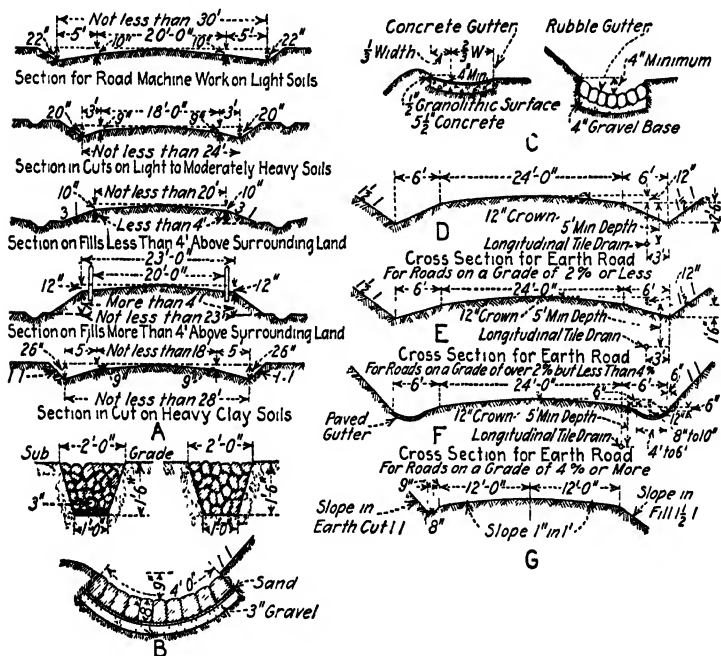 Not less than 30'
22" 5' 20'-0" 5' 22"
10" 10"
Section for Road Machine Work on Light Soils
20" 3' 18'-0" 3' 20"
9" 9"
Not less than 24'
Section in Cuts on Light to Moderately Heavy Soils
10" Not less than 20' 10"
3 3
Less than 4'
Section on Fills Less Than 4' Above Surrounding Land
23'-0"
12" 20'-0" 12"
More than 4'
Not less than 23'
Section on Fills More Than 4' Above Surrounding Land
26" 5 Not less than 18' 5 26"
1:1 9" 9" 1:1
Not less than 28'
Section in Cut on Heavy Clay Soils
A
Sub 2'-0" Grade 2'-0"
3" 1'-6" 1'-6"
1'-0" 1'-0"
9" 4' 0"
Sand
8"
3" Gravel
B
Concrete Gutter Rubble Gutter
1/3 Width 2/3 W
4" Min 4" Minimum
1/2" Granolithic Surface
5 1/2" Concrete
4" Gravel Base
C
6' 24'-0" 6' 12"
D
12" Crown
5' Min Depth
Longitudinal Tile Drain
3'
2'6"
Cross Section for Earth Road
For Roads on a Grade of 2% or Less
6' 24'-0" 6' 12"
E
12" Crown 5' Min Depth
Longitudinal Tile Drain
3'
1'6"
Cross Section for Earth Road
For Roads on a Grade of over 2% but Less Than 4%
6' 24'-0" 6' 6"
6" 6"
Paved Gutter
F
12" Crown 5' Min Depth
12"
Longitudinal Tile Drain
8" to 10"
4' to 6'
Cross Section for Earth Road
For Roads on a Grade of 4% or More
9" 12'-0" 12'-0"
Slope in Earth Cut 1 1
8"
Slope 1" in 1'
Slope in Fill 1 1/2 1
G